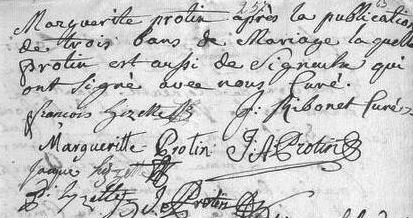 Marguerite protin après la publication
de trois bans de Mariage laquelle
Protin est aussi de Signeulx qui
ont signé avec nous Curé.
françois Gozelle J: Ribonet Curé
Margueritte Protin J: A Protin
Jacque
J: Protin